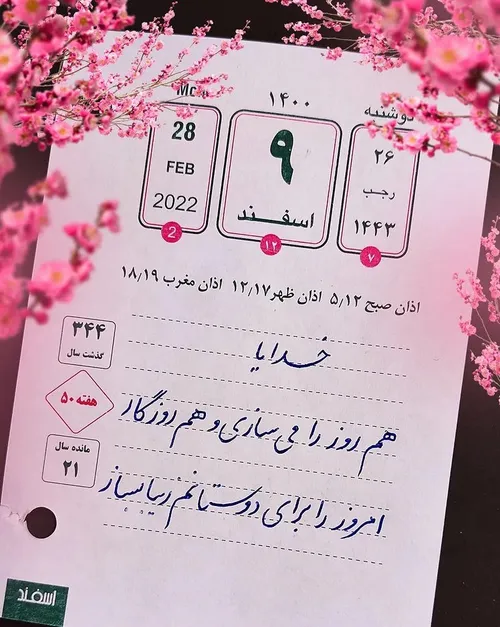 ۱۴۰۰
دوشنبه
۲۶
رجب
۱۴۴۳
۷
۹
اسفند
۱۲
28
FEB
2022
2
اذان صبح ۵٫۱۲ اذان ظهر ۱۲٫۱۷ اذان مغرب ۱۸٫۱۹
۳۴۴
گذشت سال
هفته ۵۰
مانده سال
۲۱
خدایا
هم روز را می سازی و هم روزگار
امروز را برای دوستانم زیبا بساز
اسفند